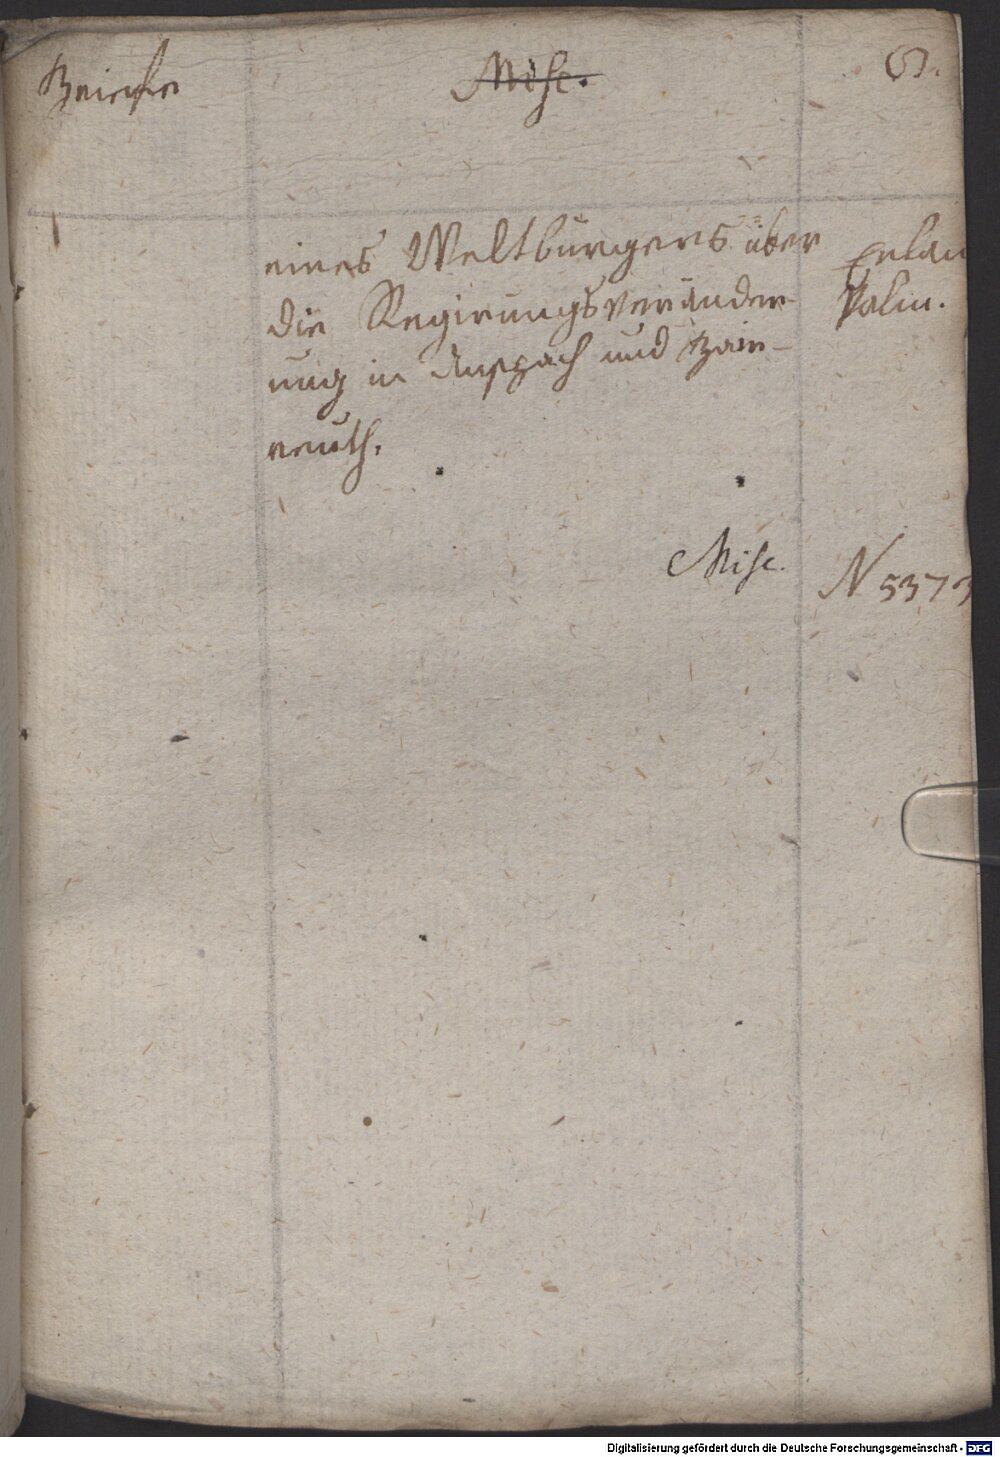 Briefe
Misc.
8.
eines Weltbürgers über
die Regierungsveränder-
ung in Anspach und Bai-
reuth.
Erlan
Palm.
Misc.
N 5373
Digitalisierung gefördert durch die Deutsche Forschungsgemeinschaft - DFG